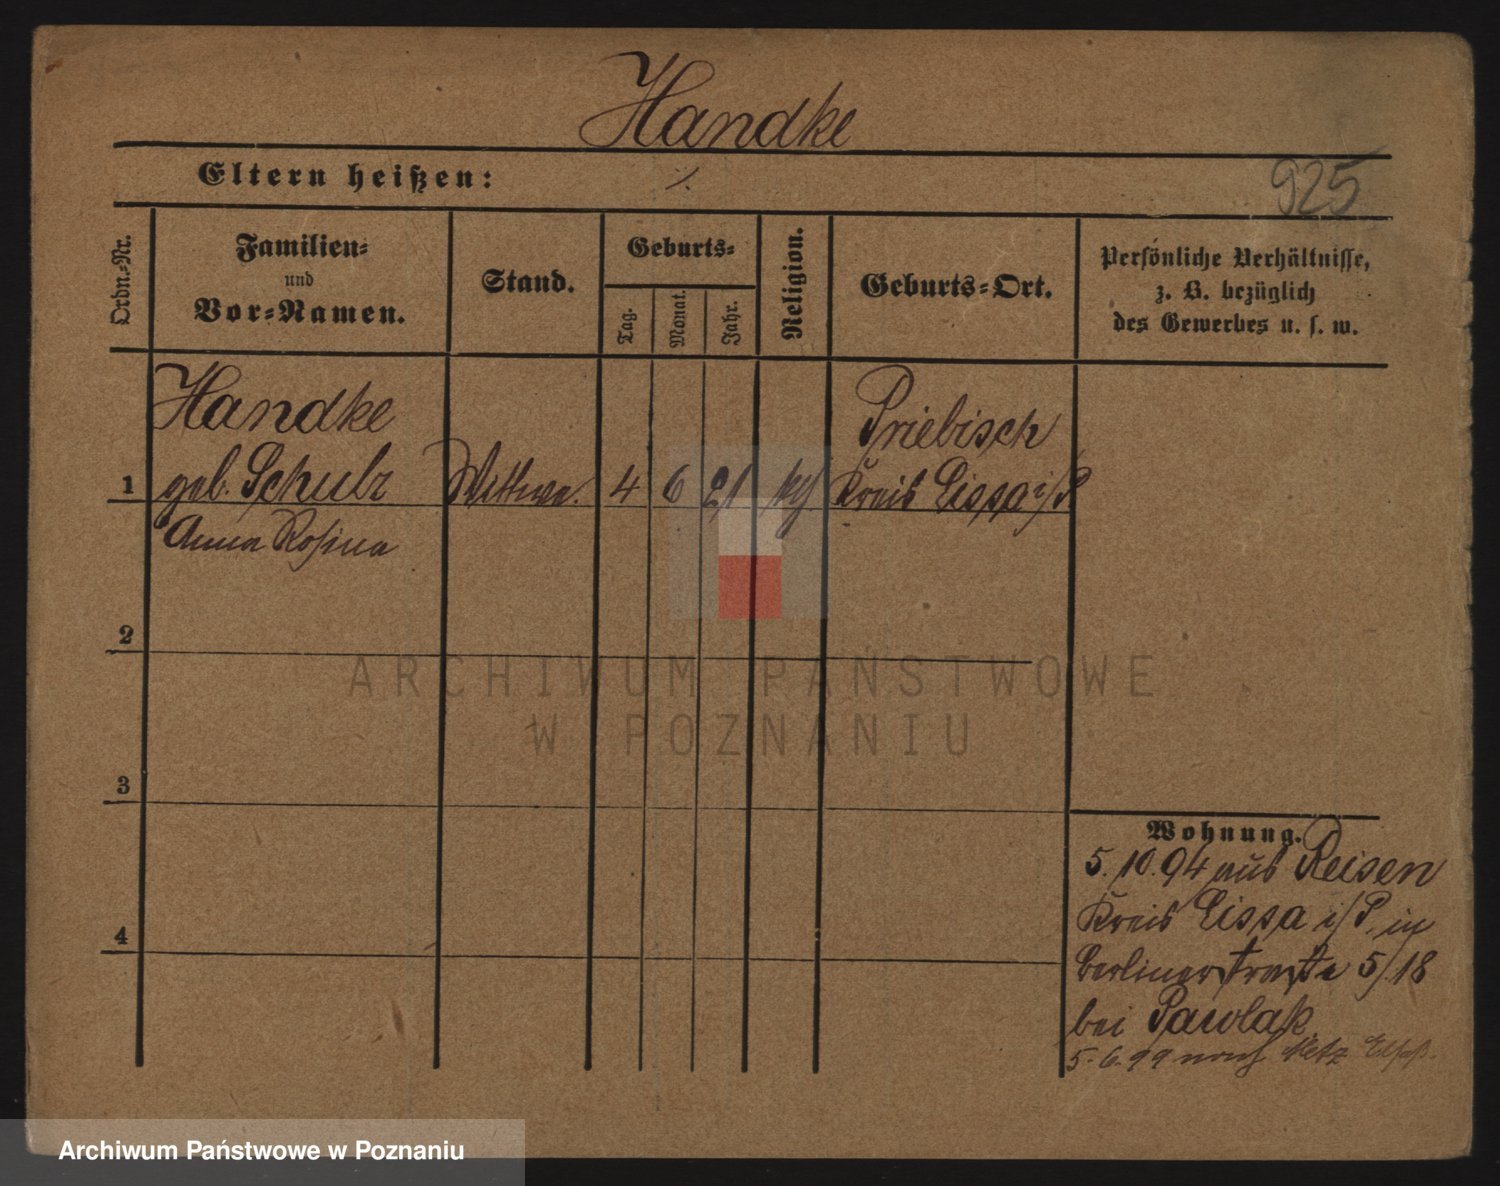 Handke
Eltern heißen: ./.
925
Ordn.-Nr.
Familien-
und
Vor-Namen.
Stand.
Geburts-
Tag.
Monat.
Jahr.
Religion.
Geburts-Ort.
Persönliche Verhältnisse,
z. B. bezüglich
des Gewerbes u. s. w.
Handke
Priebisch
1 geb. Schulz Wittwe. 4 6 21 Kreis Lissa i/P.
Anna Rosina
2
ARCHIWUM PAŃSTWOWE
W POZNANIU
3
Wohnung.
5. 10. 94 aus Reisen
Kreis Lissa i/P. in
Berlinerstraße 5/18
4
bei Pawlak
5. 6. 99 nach Metz Elsaß.
Archiwum Państwowe w Poznaniu